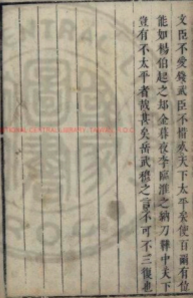 文臣不愛錢武臣不惜死天下太平矣使百爾有位
能如楊伯起之却金暮夜李臨淮之納刀鞾中天下
豈有不太平者哉甚矣岳武穆之言不可不三復也